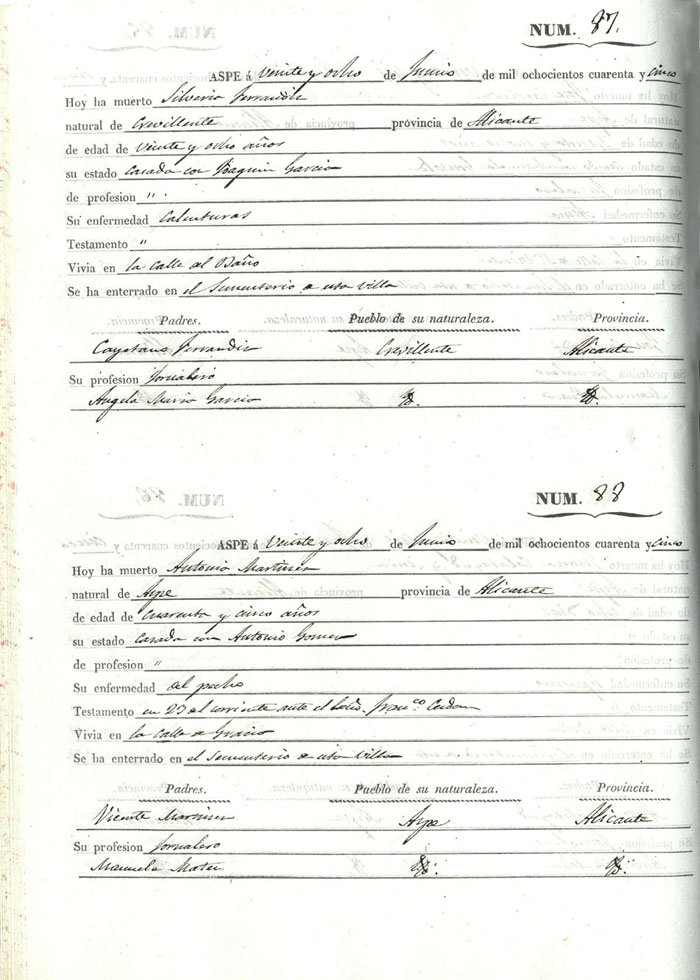 NUM. 87.
ASPE á veinte y ocho de Junio de mil ochocientos cuarenta y cinco
Hoy ha muerto Silveria Ferrandiz
natural de Crevillente provincia de Alicante
de edad de veinte y ocho años
su estado Casada con Joaquin Garcia
de profesion "
Su enfermedad Calenturas
Testamento "
Vivia en la calle del Baño
Se ha enterrado en el Sementerio de esta Villa
Padres. Pueblo de su naturaleza. Provincia.
Cayetano Ferrandiz Crevillente Alicante
Su profesion Jornalero
Angela Maria Garcia Yd. Yd.
NUM. 88
ASPE á Veinte y ocho de Junio de mil ochocientos cuarenta y cinco
Hoy ha muerto Antonia Martinez
natural de Aspe provincia de Alicante
de edad de cuarenta y cinco años
su estado Casada con Antonio Gomez
de profesion "
Su enfermedad del pecho
Testamento en 23 del corriente ante el Franco.
Vivia en la calle de
Se ha enterrado en el Sementerio de esta Villa
Padres. Pueblo de su naturaleza. Provincia.
Vicente Martinez Aspe Alicante
Su profesion Jornalero
Manuela Mateu Yd. Yd.